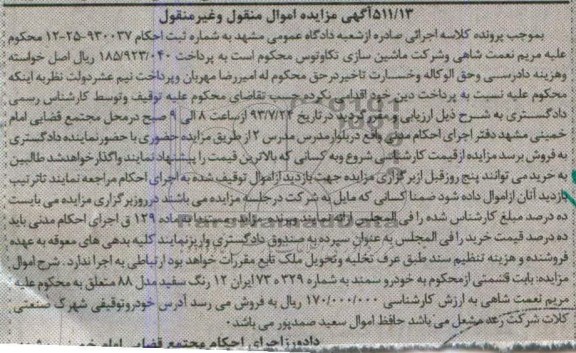 ۵۱۱/۱۳آگهی مزایده اموال منقول وغیرمنقول
بموجب پرونده کلاسه اجرائی صادره ازشعبه دادگاه عمومی مشهد به شماره ثبت احکام ۹۳۰۰۳۷-۲۵-۱۲ محکوم
علیه مریم نعمت شاهی وشرکت ماشین سازی تکاوتوس محکوم است به پرداخت ۱۸۵/۹۲۳/۰۴۰ ریال اصل خواسته
وهزینه دادرسی وحق الوکاله وخسارت تاخیردرحق محکوم له امیررضا مهربان وپرداخت نیم عشردولت نظربه اینکه
محکوم علیه نسبت به پرداخت دین خود اقدامی نکرده حسب تقاضای محکوم علیه توقیف وتوسط کارشناس رسمی
دادگستری به شرح ذیل ارزیابی و مقرر گردید درتاریخ ۹۳/۷/۲۴ ازساعت ۸ الی ۹ صبح درمحل مجتمع قضایی امام
خمینی مشهد دفتر اجرای احکام مدنی واقع دربلوارمدرس مدرس ۲ از طریق مزایده حضوری با حضورنماینده دادگستری
به فروش برسد مزایده ازقیمت کارشناسی شروع وبه کسانی که بالاترین قیمت را پیشنهاد نمایند واگذارخواهدشد طالبین
به خرید می توانند پنج روزقبل ازبرگزاری مزایده جهت بازدید ازاموال توقیف شده به اجرای احکام مراجعه نمایند تاترتیب
بازدید آنان ازاموال داده شود ضمنا کسانی که مایل به شرکت درجلسه مزایده می باشند درروزبرگزاری مزایده می بایست
ده درصد مبلغ کارشناس شده را فی المجلس ارائه نمایند برنده مزایده مستند به ماده ۱۲۹ ق اجرای احکام مدنی باید
ده درصد قیمت خرید را فی المجلس به عنوان سپرده به صندوق دادگستری واریزنمایند کلیه بدهی های معوقه به عهده
فروشنده و هزینه تنظیم سند طبق عرف تخلیه وتحویل ملک تابع مقررات خواهد بود ارتباطی به اجرا ندارد. شرح اموال
مزایده: بابت قسمتی ازمحکوم به خودرو سمند به شماره ۳۲۹ ه ۷۳ ایران ۱۲ رنگ سفید مدل ۸۸ متعلق به محکوم علیه
مریم نعمت شاهی به ارزش کارشناسی ۱۷۰/۰۰۰/۰۰۰ ریال به فروش می رسد آدرس خودروتوقیفی شهرک صنعتی
کلات شرکت رعد مشعل می باشد حافظ اموال سعید صمدپور می باشد.
دادورزاجرای احکام مجتمع قضایی امام خمینی